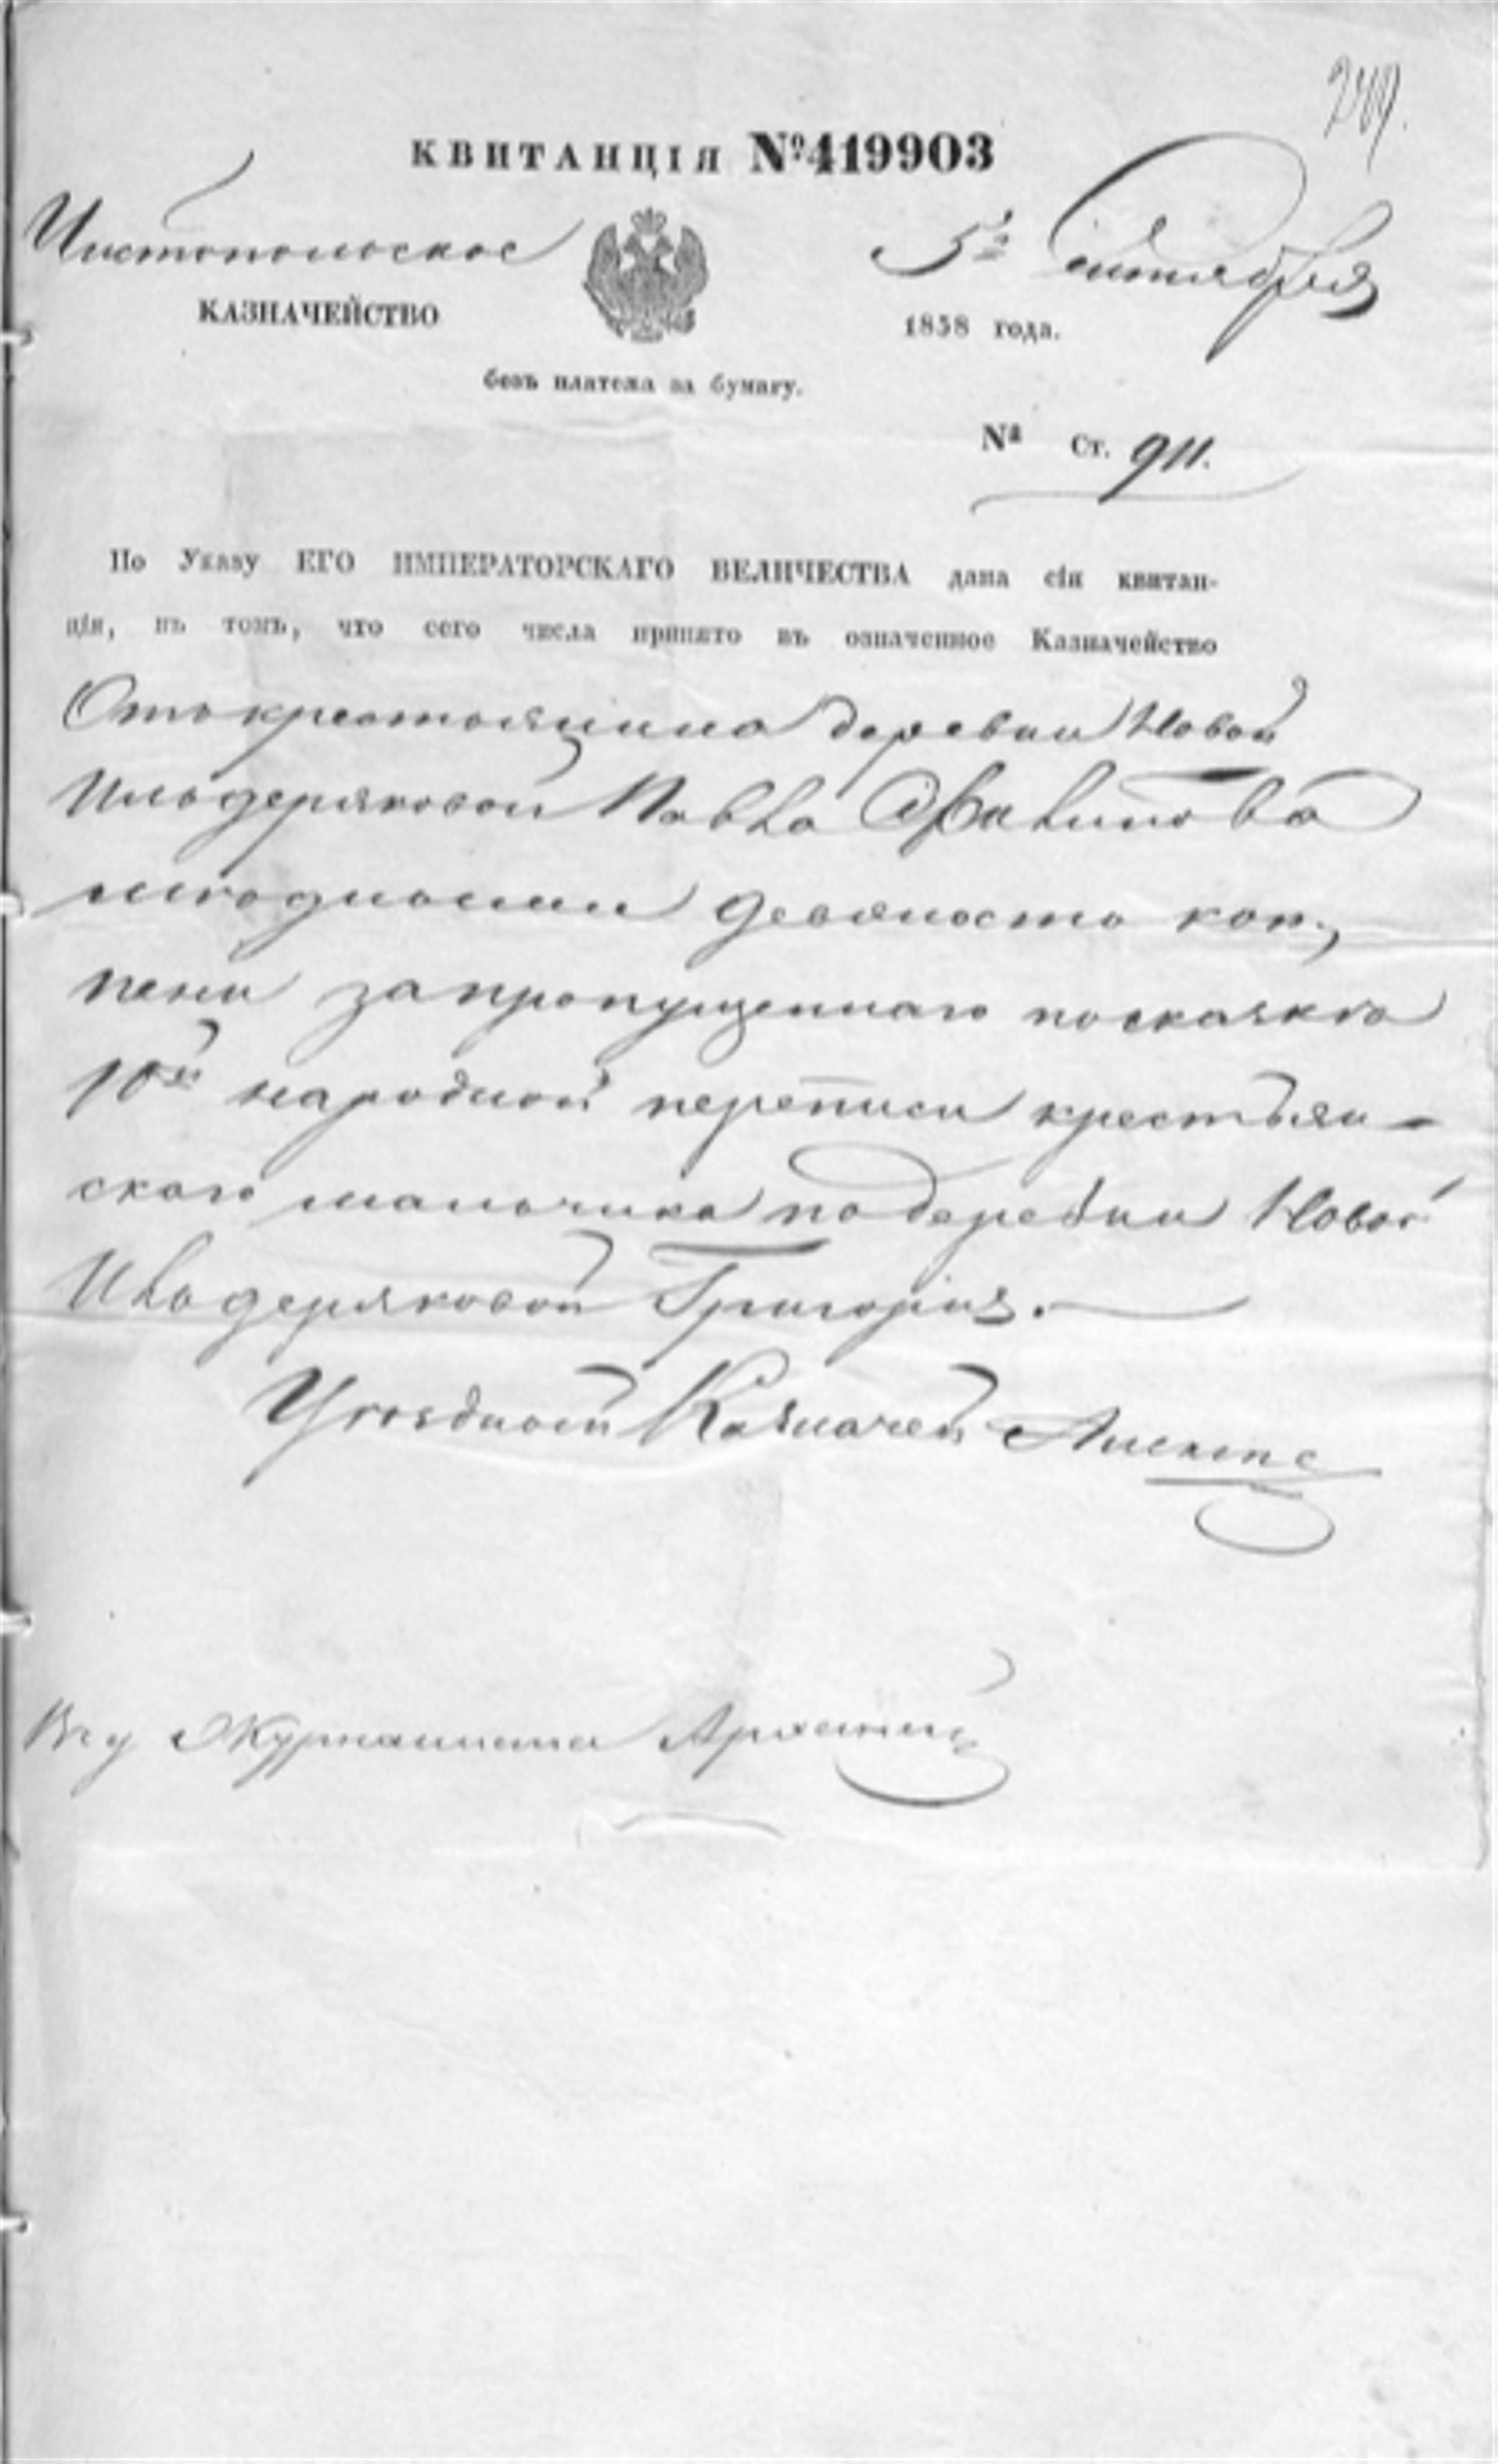 КВИТАНЦІЯ №419903
Чистопольское
5го Сентября
КАЗНАЧЕЙСТВО
1858 года.
безъ платежа за бумагу.
№ Ст. 911.
По Указу ЕГО ИМПЕРАТОРСКАГО ВЕЛИЧЕСТВА дана сія квитан-
ція, въ томъ, что сего числа принято въ означенное Казначейство
Отъ крестьянина деревни Новой
Ивадеряковой Павла Филипова
девяносто коп.,
пени за пропущеннаго по сказкѣ
10й народной переписи крестьян-
скаго мальчика по деревни Новой
Ивадеряковой Григорія.
Уѣздной Казначей
Журналиста